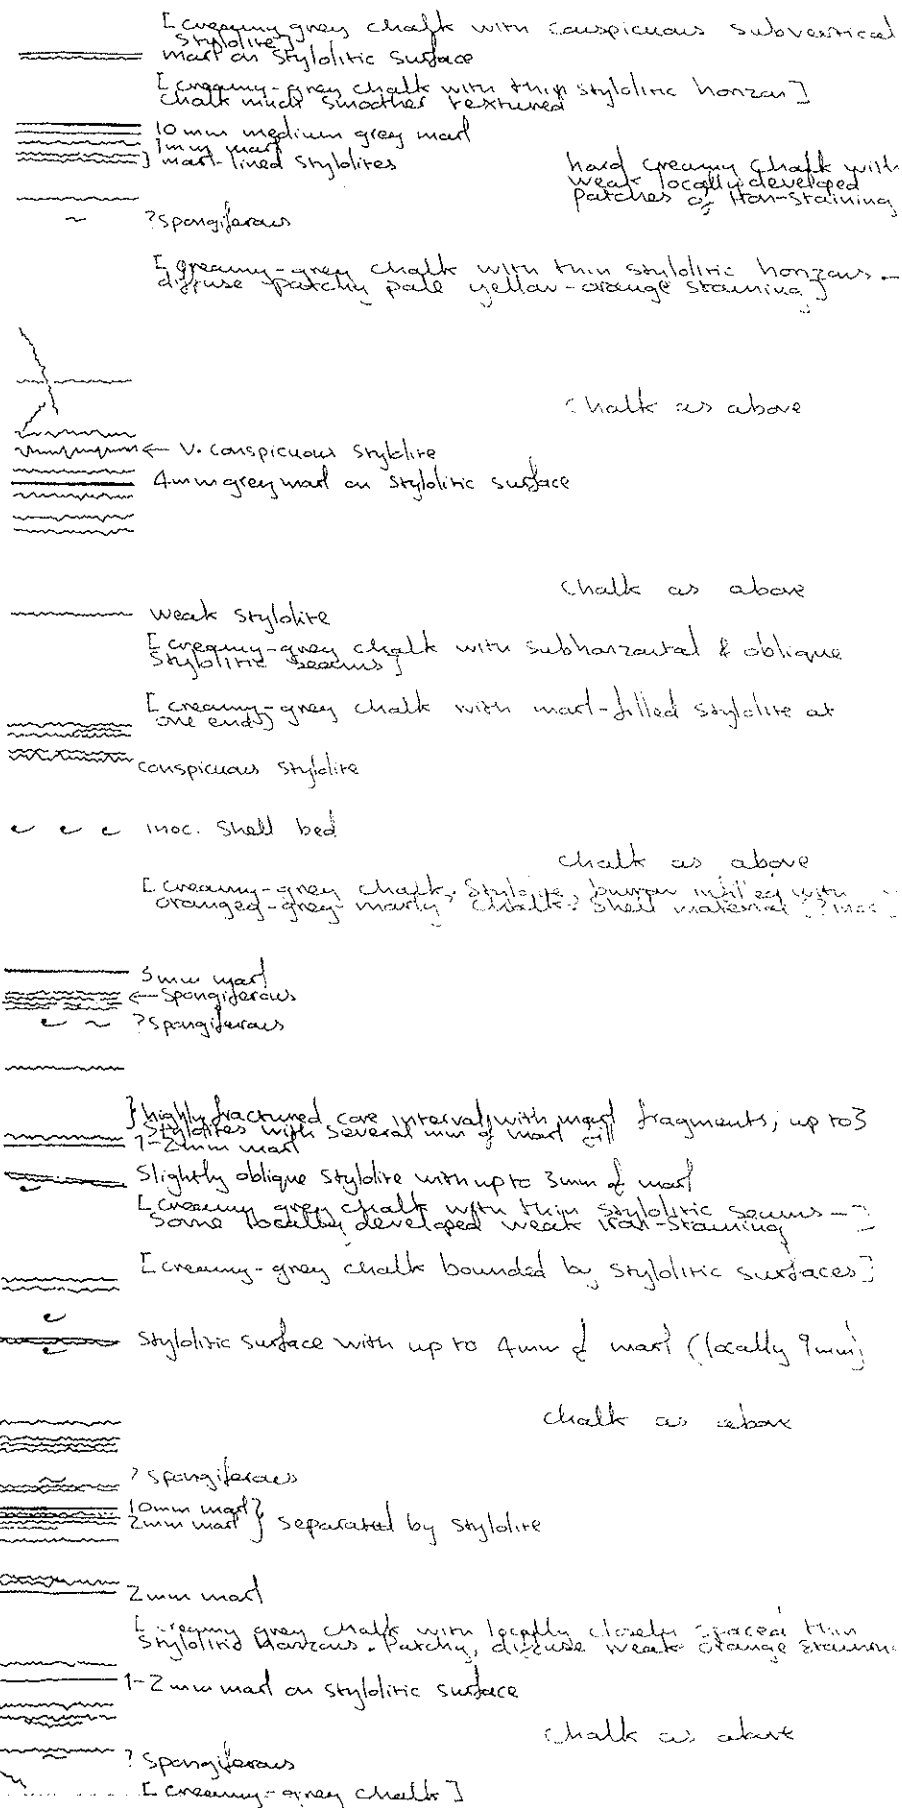 [creamy grey chalk with conspicuous subvertical
stylolite]
marl on stylolitic surface
[creamy-grey chalk with thin stylolitic horizon]
chalk much smoother textured
10mm medium grey marl
1mm marl
} marl-lined stylolites
hard creamy chalk with
weak locally developed
patches of iron-staining
?spongiferous
[greamy-grey chalk with thin stylolitic horizons -
diffuse patchy pale yellow-orange staining]
chalk as above
← v. conspicuous stylolite
4mm grey marl on stylolitic surface
chalk as above
weak stylolite
[creamy-grey chalk with subhorizontal & oblique
stylolitic seams]
[creamy-grey chalk with marl-filled stylolite at
one end]
conspicuous stylolite
inoc. shell bed
chalk as above
[creamy-grey chalk. Stylolite, burrow infilled with
oranged-grey marly chalk. Shell material [?inoc]
3mm marl
← spongiferous
?spongiferous
} highly fractured core interval, with marl fragments, up to 3
stylolites with several mm of marl
1-2mm marl
Slightly oblique stylolite with up to 3mm of marl
[creamy grey chalk with thin stylolitic seams -]
some locally developed weak iron-staining
[creamy-grey chalk bounded by stylolitic surfaces]
Stylolitic surface with up to 4mm of marl (locally 9mm)
chalk as above
? spongiferous
10mm marl }
2mm marl } separated by stylolite
2mm marl
[creamy grey chalk with locally closely spaced thin
stylolitic horizons. Patchy, diffuse weak orange staining
1-2mm marl on stylolitic surface
chalk as above
? spongiferous
[creamy-grey chalk]